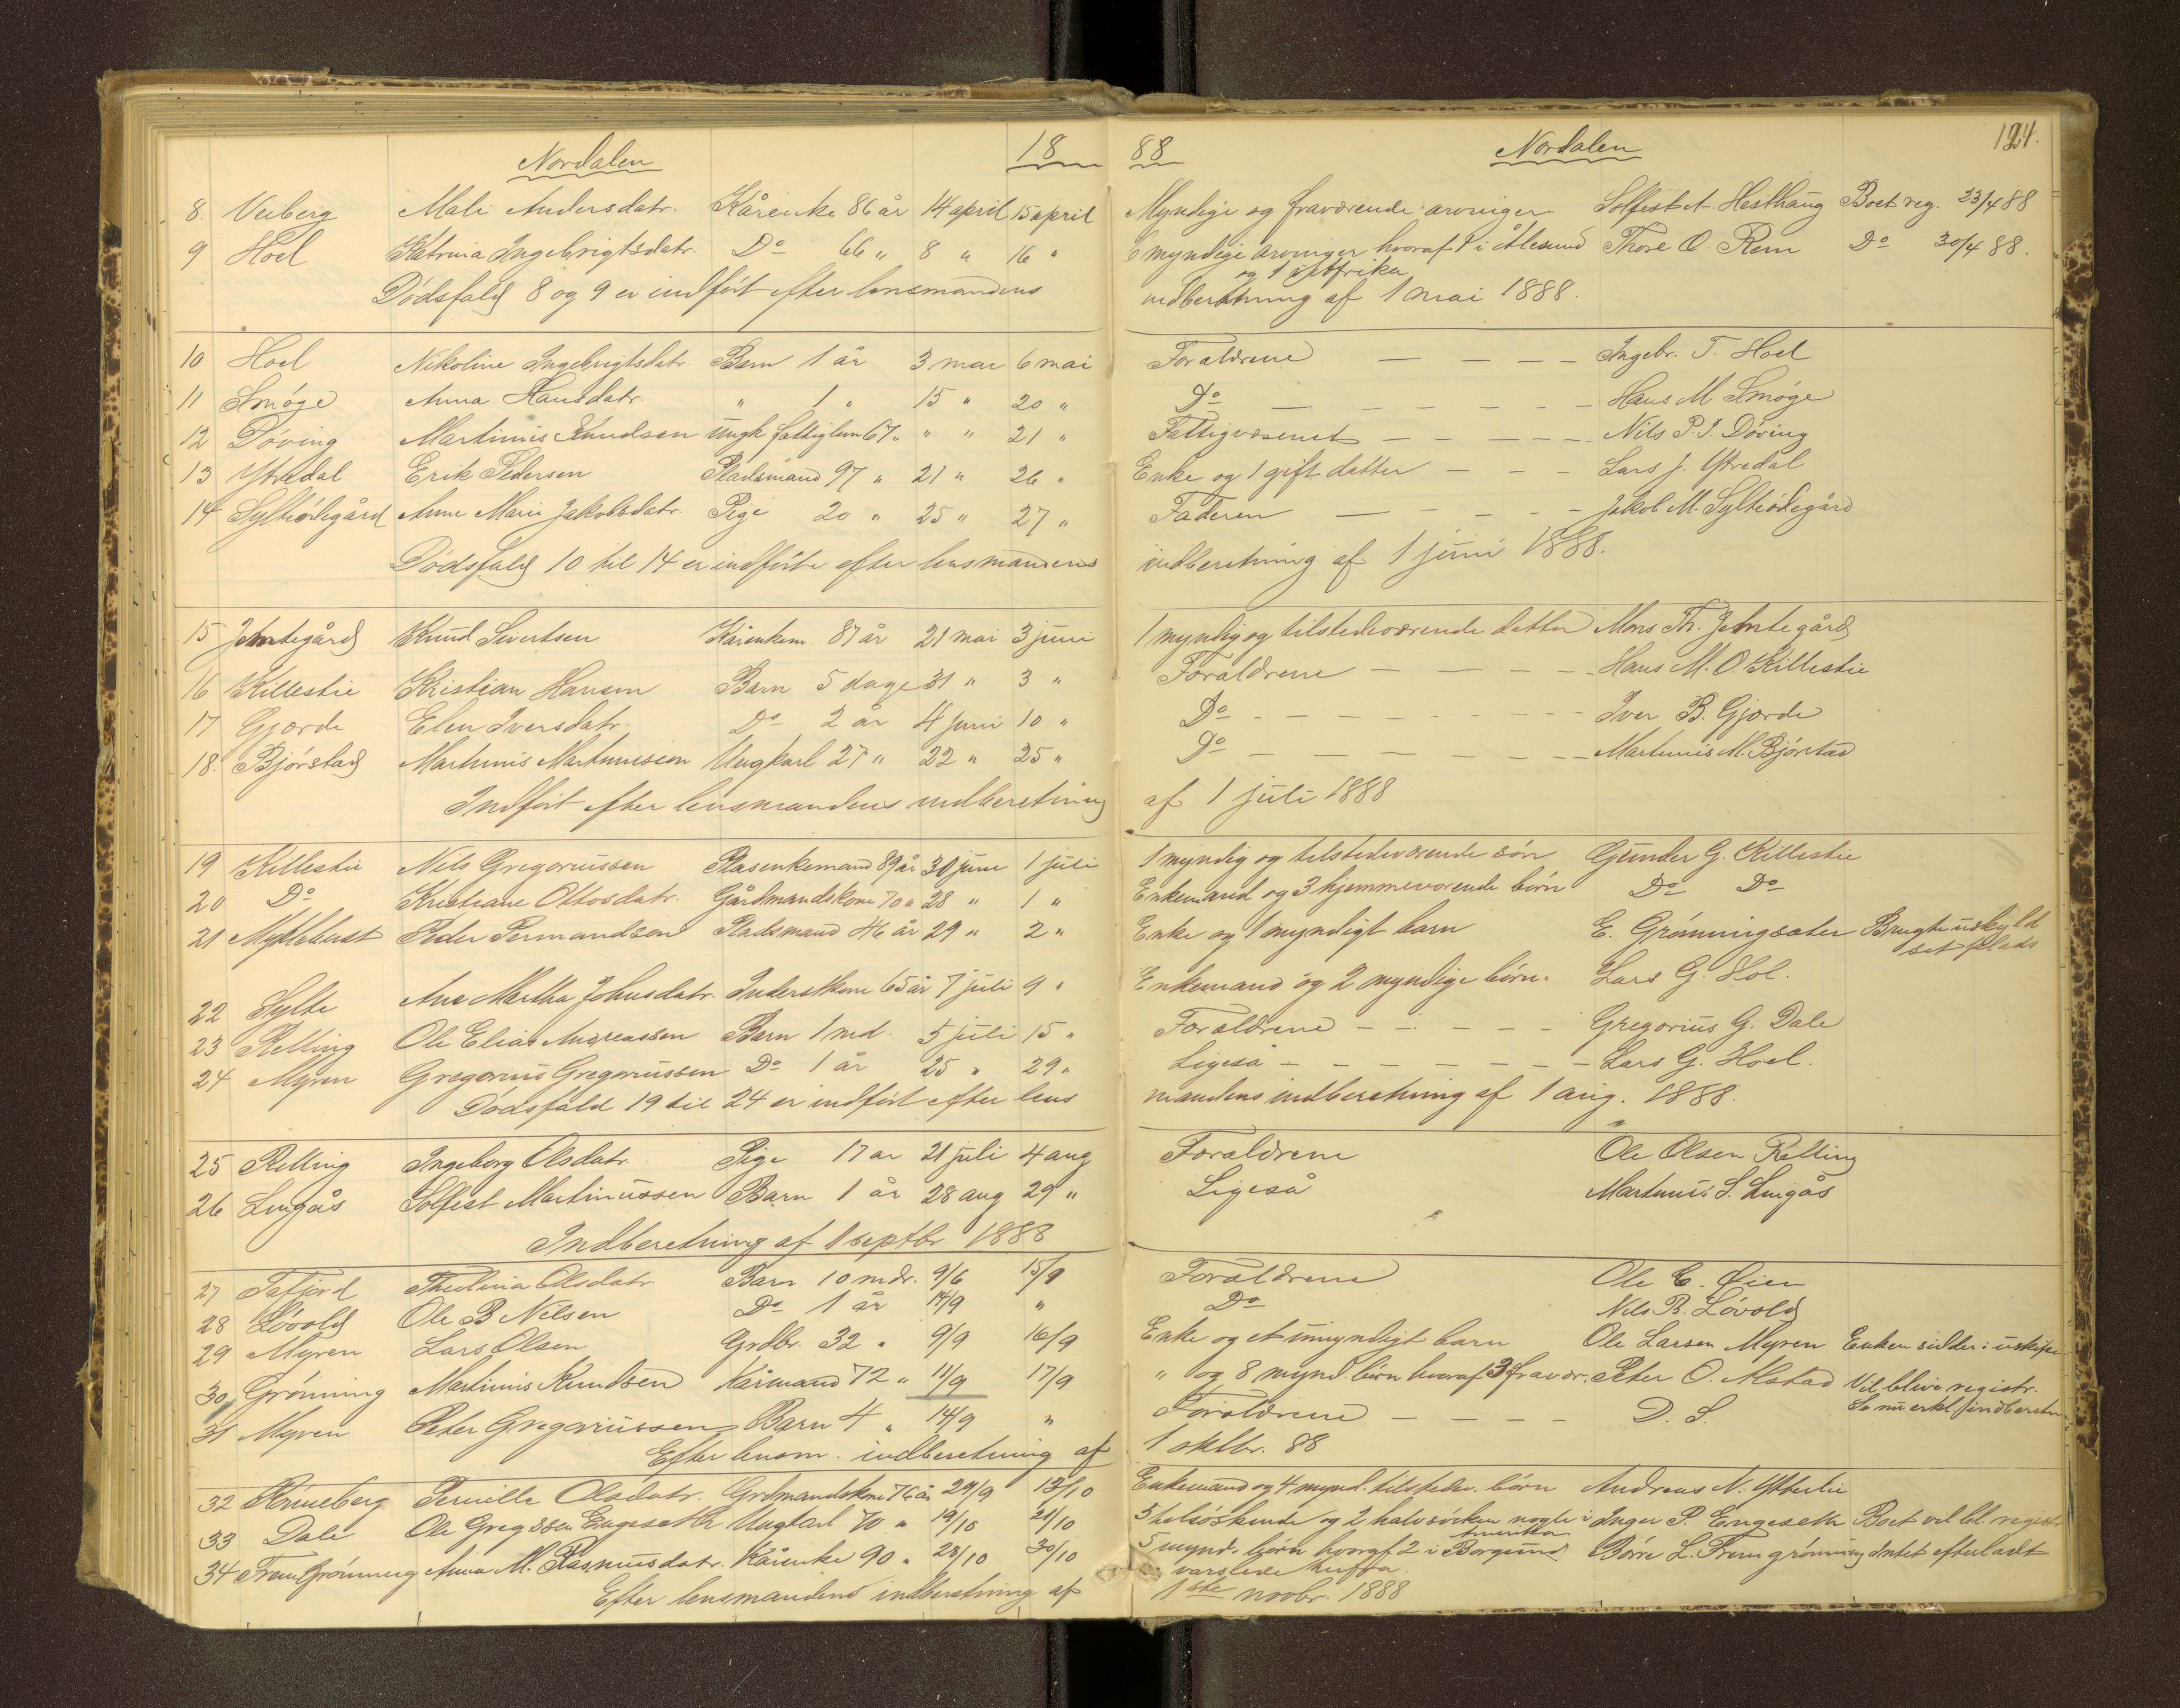 Nordalen 18 88 Nordalen 124.
8. Veiberg Mali Andersdatr. Kårenke 86 år 14 april 15 april Myndige og fraværende arvinger Solfest A. Hesthaug Boet reg. 23/4 88
9 Hoel Katrina Ingebrigtsdatr. Do 66 " 8 " 16 " 6 myndige arvinger hvoraf 1 i Ålesund Thore O. Rem Do 30/4 88.
og 1 i Afrika
Dødsfald 8 og 9 er indført efter lensmandens indberetning af 1 mai 1888.
10 Hoel Nikoline Ingebrigtsdatr. Barn 1 år 3 mai 6 mai Forældrene — — — — Ingebr. T. Hoel
11 Smøge Anna Hansdatr. " 1 " 15 " 20 " Do — — — — — — Hans M Smøge
12 Døving Martinus Knudsen ungk. fattiglem 67 " " " 21 " Fattigvæsenet — — — — — Nils P. I. Døving
13 Ytredal Erik Pedersen Pladsmand 97 " 21 " 26 " Enke og 1 gift datter — — — Lars J. Ytredal
14 Sylteødegård Anne Marie Jakobsdatr. Pige 20 " 25 " 27 " Faderen — — — — — Jakob M. Sylteødegård
Dødsfald 10 til 14 er indførte efter lensmandens indberetning af 1 juni 1888.
15 Jamtegård Knud Sivertsen Kårenkem. 87 år 21 mai 3 juni 1 myndig og tilstedeværende datter Mons Th. Jamtegård
16 Killestie Kristian Hansen Barn 5 dage 31 " 3 " Forældrene — — — — Hans M. O. Killestie
17 Gjørde Elen Iversdatr. Do 2 år 4 juni 10 " Do — — — — — — — Iver B. Gjørde
18. Bjørstad Martinus Martinussen Ungkarl 27 " 22 " 25 " Do — — — — — — — Martinus M. Bjørstad
Indført efter lensmandens indberetning af 1 juli 1888
19 Killestie Nils Gregoriussen Plasenkemand 89 år 30 juni 1 juli 1 myndig og tilstedeværende søn Gunder G. Killestie
20 Do Kristiane Ottosdatr. Gårdmandskone 70 " 28 " 1 " Enkemand og 3 hjemmeværende børn Do Do
21 Myklebust Peder Permandsen Pladsmand 46 år 29 " 2 " Enke og 1 myndigt barn E. Grønningsæter Brugte uskyld
sat plads
22 Sylte Ane Martha Johnsdatr. Inderstkone 65 år 7 juli 9 " Enkemand og 2 myndige børn. Lars G. Hol.
23 Relling Ole Elias Andreassen Barn 1 md. 5 juli 15 " Forældrene — — — — — Gregorius G. Dale
24 Myren Gregorius Gregoriussen Do 1 år 25 " 29 " Ligeså — — — — — — — Lars G. Hoel.
Dødsfald 19 til 24 er indført efter lens mandens indberetning af 1 aug. 1888.
25 Relling Ingeborg Olsdatr. Pige 17 år 21 juli 4 aug Forældrene Ole Olsen Relling
26 Lingås Solfest Martinussen Barn 1 år 28 aug 29 " Ligeså Martinus S. Lingås
Indberetning af 1 septbr. 1888
27 Tafjord Olsdatr. Barn 10 mdr. 9/6 15/9 Forældrene Ole E. Øien
28 Løvold Ole B Nilsen Do 1 år 14/9 " Do Nils B. Løvold
29 Myren Lars Olsen Grdbr. 32 " 9/9 16/9 Enke og et umyndigt barn Ole Larsen Myren Enken sidder i uskifte
30 Grønning Martinus Knudsen Kårmand 72 " 11/9 17/9 " og 8 mynd. børn hvoraf 3 fravær. Peter O. Alstad Vil blive registr.
31 Myren Peter Gregoriussen Barn 4 " 14/9 " Forældrene — — — — D. S. Se nu erkl. indberetn.
Efter lensm. indberetning af 1 oktbr. 88
32 Pernille Olsdatr. Grdmandskone 76 år 29/9 13/10 Enkemand og 4 mynd. tilstedev. børn Andreas N. Ytterlie
33 Dale Ole Gregssen Engeseth Ungkarl 70 " 19/10 21/10 3 helsøskende og 2 halvsøsken nogle i Inger P. Engeseth Boet vil bl. registr.
Amerika
34 Fremgrønning Anna M. Rasmusdatr. Kårenke 90 " 23/10 30/10 5 mynd. børn hvoraf 2 i Borgund Børre L. Fremgrønning Intet efterladt
Efter lensmandens indberetning af 1ste novbr. 1888